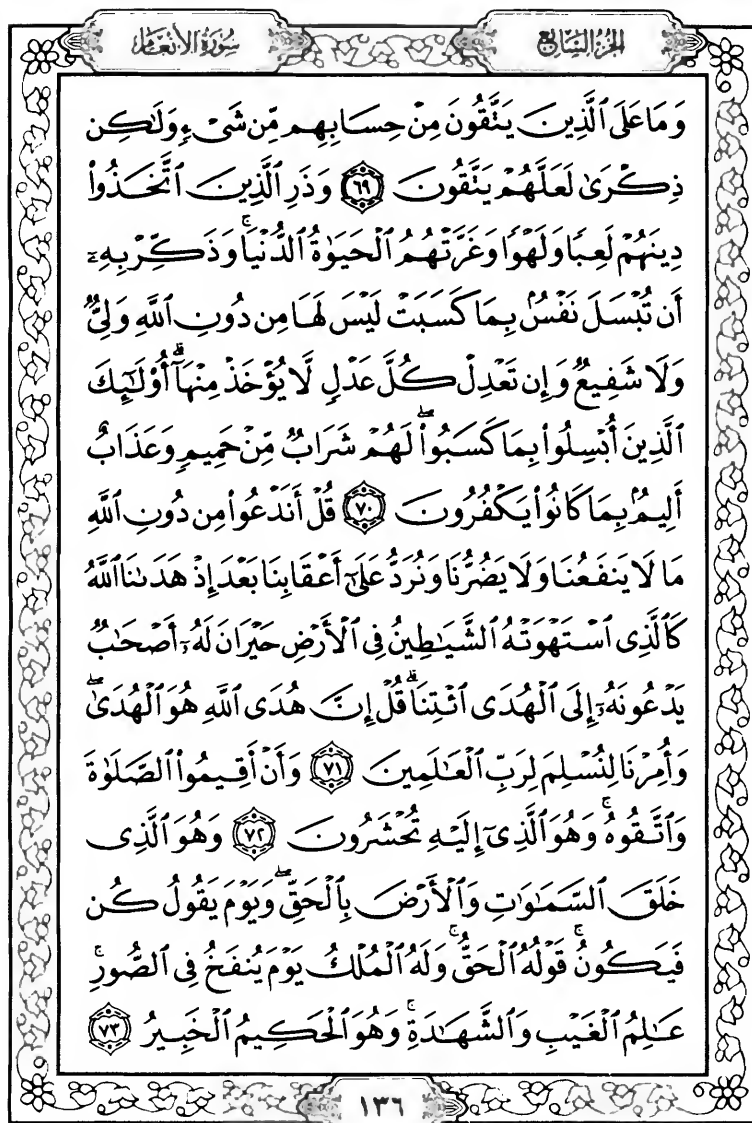 الجزء السابع
سورة الأنعام
وَمَا عَلَى ٱلَّذِينَ يَتَّقُونَ مِنْ حِسَابِهِم مِّن شَىْءٍ وَلَٰكِن
ذِكْرَىٰ لَعَلَّهُمْ يَتَّقُونَ ٦٩ وَذَرِ ٱلَّذِينَ ٱتَّخَذُوا۟
دِينَهُمْ لَعِبًا وَلَهْوًا وَغَرَّتْهُمُ ٱلْحَيَوٰةُ ٱلدُّنْيَا ۚ وَذَكِّرْ بِهِۦٓ
أَن تُبْسَلَ نَفْسٌۢ بِمَا كَسَبَتْ لَيْسَ لَهَا مِن دُونِ ٱللَّهِ وَلِىٌّ
وَلَا شَفِيعٌ وَإِن تَعْدِلْ كُلَّ عَدْلٍ لَّا يُؤْخَذْ مِنْهَآ ۗ أُو۟لَٰٓئِكَ
ٱلَّذِينَ أُبْسِلُوا۟ بِمَا كَسَبُوا۟ ۖ لَهُمْ شَرَابٌ مِّنْ حَمِيمٍ وَعَذَابٌ
أَلِيمٌۢ بِمَا كَانُوا۟ يَكْفُرُونَ ٧٠ قُلْ أَنَدْعُوا۟ مِن دُونِ ٱللَّهِ
مَا لَا يَنفَعُنَا وَلَا يَضُرُّنَا وَنُرَدُّ عَلَىٰٓ أَعْقَابِنَا بَعْدَ إِذْ هَدَىٰنَا ٱللَّهُ
كَٱلَّذِى ٱسْتَهْوَتْهُ ٱلشَّيَٰطِينُ فِى ٱلْأَرْضِ حَيْرَانَ لَهُۥٓ أَصْحَٰبٌ
يَدْعُونَهُۥٓ إِلَى ٱلْهُدَى ٱئْتِنَا ۗ قُلْ إِنَّ هُدَى ٱللَّهِ هُوَ ٱلْهُدَىٰ ۖ
وَأُمِرْنَا لِنُسْلِمَ لِرَبِّ ٱلْعَٰلَمِينَ ٧١ وَأَنْ أَقِيمُوا۟ ٱلصَّلَوٰةَ
وَٱتَّقُوهُ ۚ وَهُوَ ٱلَّذِىٓ إِلَيْهِ تُحْشَرُونَ ٧٢ وَهُوَ ٱلَّذِى
خَلَقَ ٱلسَّمَٰوَٰتِ وَٱلْأَرْضَ بِٱلْحَقِّ ۖ وَيَوْمَ يَقُولُ كُن
فَيَكُونُ ۚ قَوْلُهُ ٱلْحَقُّ ۚ وَلَهُ ٱلْمُلْكُ يَوْمَ يُنفَخُ فِى ٱلصُّورِ ۚ
عَٰلِمُ ٱلْغَيْبِ وَٱلشَّهَٰدَةِ ۚ وَهُوَ ٱلْحَكِيمُ ٱلْخَبِيرُ ٧٣
١٣٦